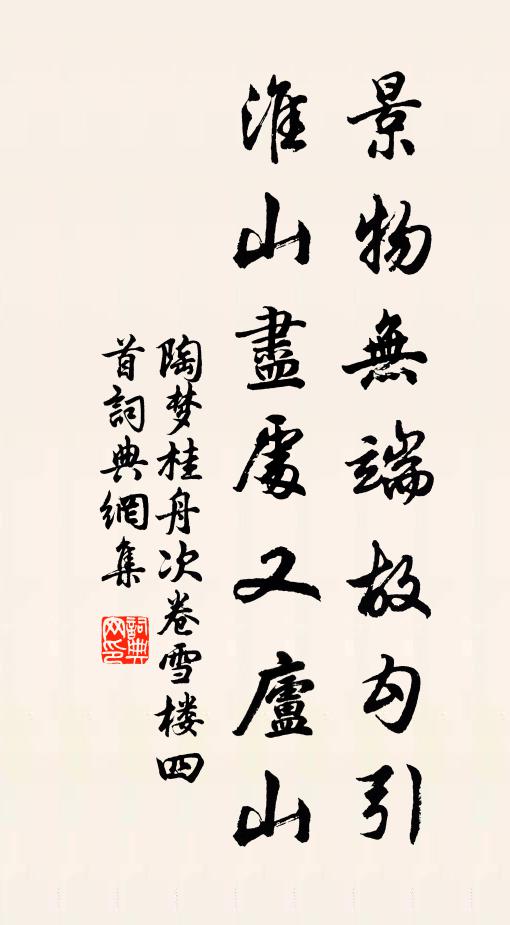 景物無端故勾引
淮山盡處又廬山
陶梦桂舟次卷雪楼四
首詞典網集
詞典
网印